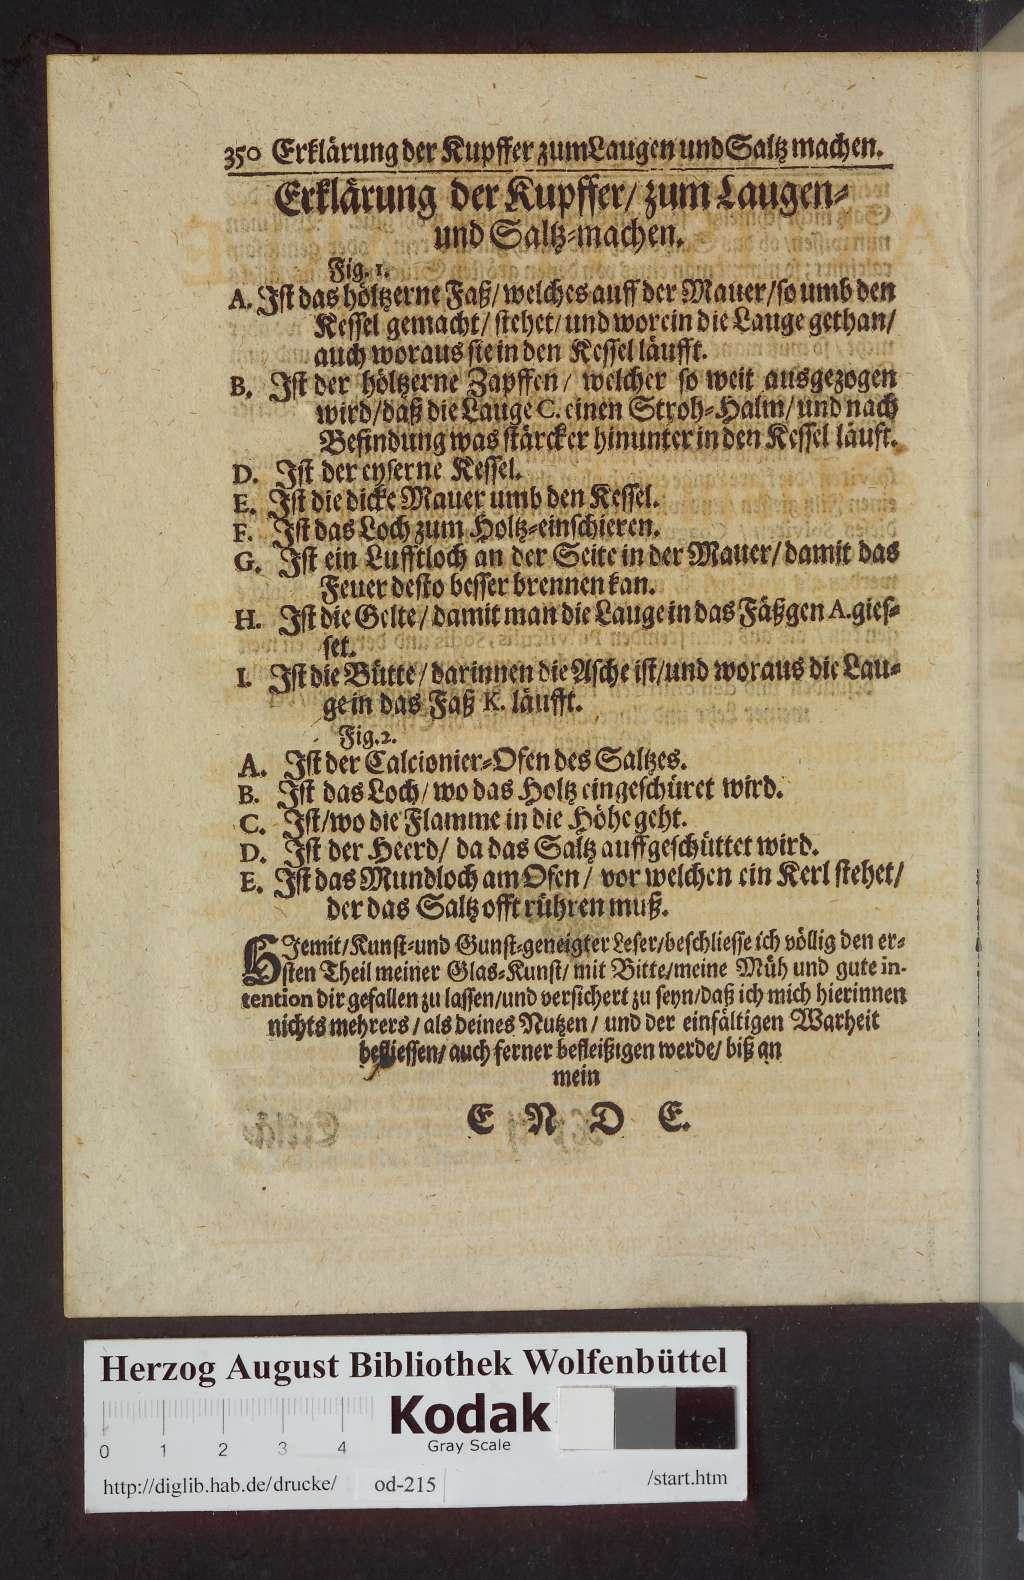 350 Erklärung der Kupffer zum Laugen und Saltz machen.
Erklärung der Kupffer/ zum Laugen-
und Saltz-machen.
Fig. 1.
A. Ist das höltzerne Faß/ welches auff der Mauer/ so umb den
Kessel gemacht/ stehet/ und worein die Lauge gethan/
auch woraus sie in den Kessel läufft.
B. Ist der höltzerne Zapffen/ welcher so weit ausgezogen
wird/ daß die Lauge C. einen Stroh-Halm/ und nach
Befindung was stärcker hinunter in den Kessel läuft.
D. Ist der eyserne Kessel.
E. Ist die dicke Mauer umb den Kessel.
F. Ist das Loch zum Holtz-einschieren.
G. Ist ein Lufftloch an der Seite in der Mauer/ damit das
Feuer desto besser brennen kan.
H. Ist die Gelte/ damit man die Lauge in das Fäßgen A. gies-
set.
I. Ist die Bütte/ darinnen die Asche ist/ und woraus die Lau-
ge in das Faß K. läufft.
Fig. 2.
A. Ist der Calcionier-Ofen des Saltzes.
B. Ist das Loch/ wo das Holtz eingeschüret wird.
C. Ist/ wo die Flamme in die Höhe geht.
D. Ist der Heerd/ da das Saltz auffgeschüttet wird.
E. Ist das Mundloch am Ofen/ vor welchen ein Kerl stehet/
der das Saltz offt rühren muß.
HJemit/ Kunst- und Gunst-geneigter Leser/ beschliesse ich völlig den er-
sten Theil meiner Glas-Kunst/ mit Bitte/ meine Müh und gute in-
tention dir gefallen zu lassen/ und versichert zu seyn/ daß ich mich hierinnen
nichts mehrers/ als deines Nutzen/ und der einfältigen Warheit
befliessen/ auch ferner befleißigen werde/ biß an
mein
E N D E.
Herzog August Bibliothek Wolfenbüttel
Kodak
Gray Scale
0 1 2 3 4
http://diglib.hab.de/drucke/ od-215 /start.htm